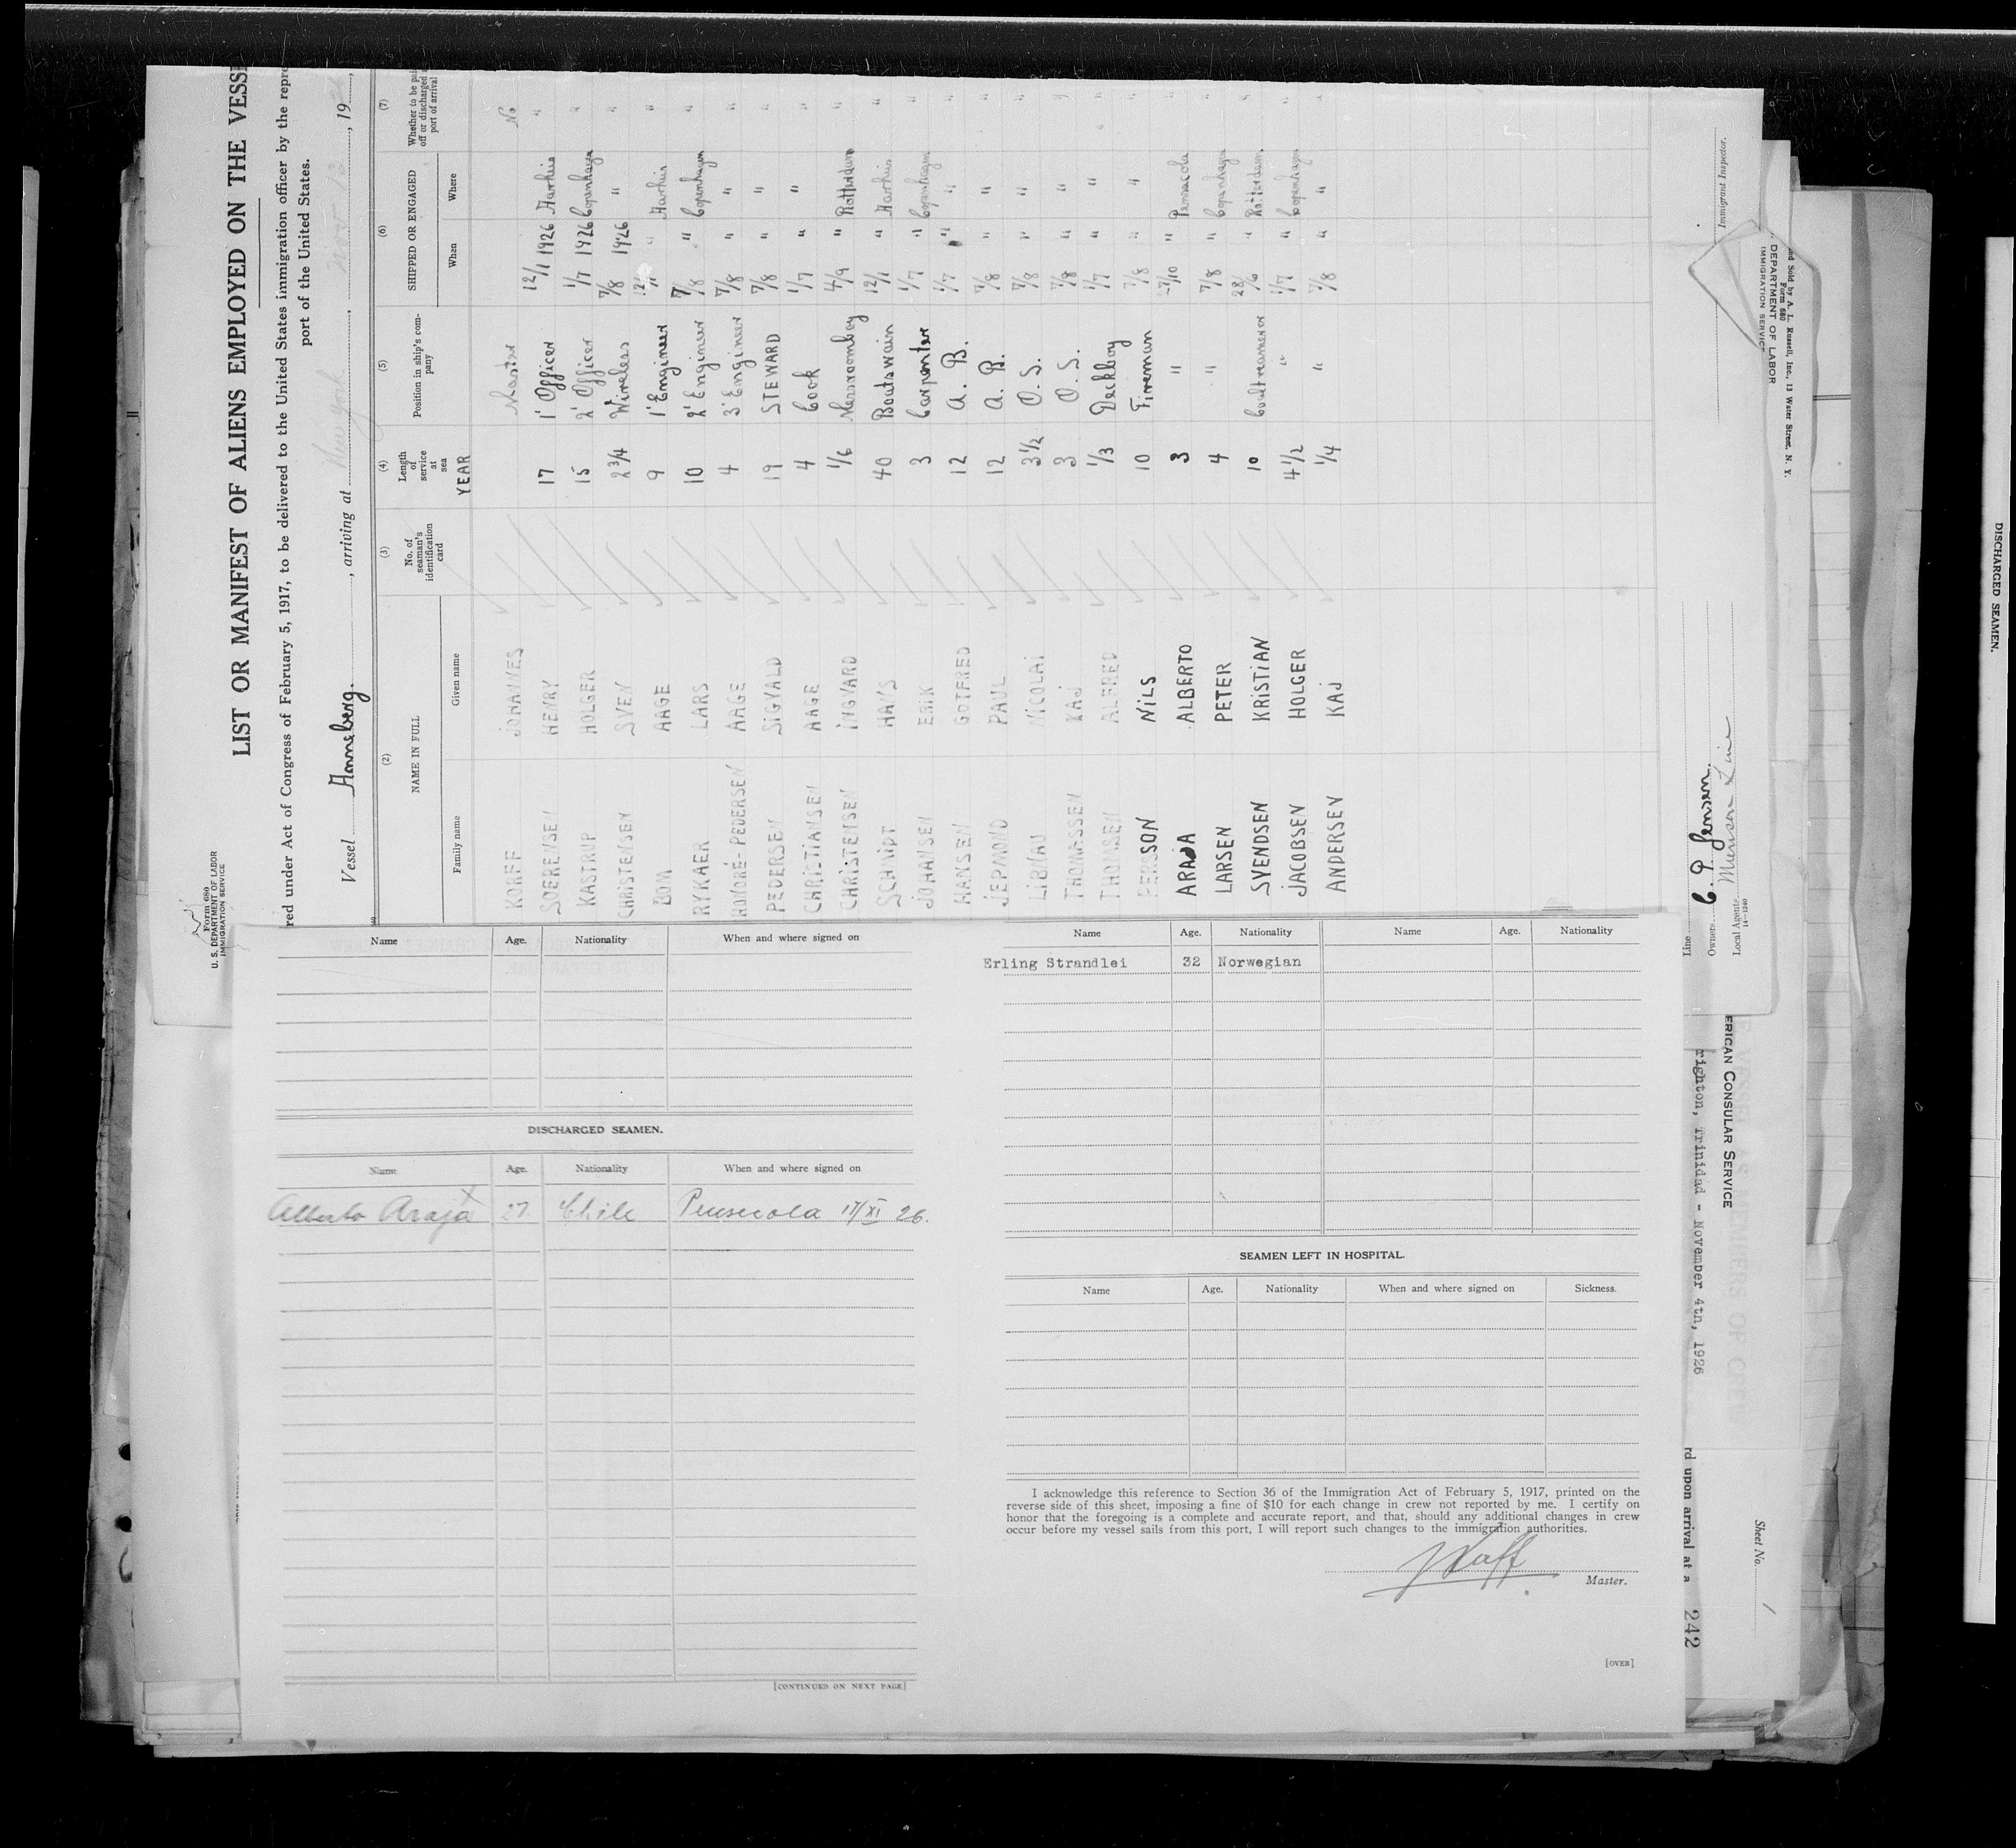 Form 680
U. S. DEPARTMENT OF LABOR
IMMIGRATION SERVICE
LIST OR MANIFEST OF ALIENS EMPLOYED ON THE VESSE
red under Act of Congress of February 5, 1917, to be delivered to the United States immigration officer by the repre
port of the United States.
Vessel Anneberg. , arriving at Newyork , 19
(2) (3) (4) (5) (6) (7)
NAME IN FULL No. of seaman's identification card Length of service at sea Position in ship's company SHIPPED OR ENGAGED Whether to be paid off or discharged at port of arrival
Family name Given name YEAR When Where
KORFF JOHANNES Master No
SOERENSEN HENRY 17 1' Officer 12/1 1926 Aarhuis "
KASTRUP HOLGER 15 2' Officer 1/7 1926 Copenhagen "
CHRISTENSEN SVEN 2 3/4 Wireless 7/8 1926 " "
BOM AAGE 9 1' Engineer 12/1 " Aarhuis "
RYKAER LARS 10 2' Engineer 7/8 " Copenhagen "
HONORÉ-PEDERSEN AAGE 4 3' Engineer 7/8 " " "
PEDERSEN SIGVALD 19 STEWARD 7/8 " " "
CHRISTIANSEN AAGE 4 Cook 1/7 " " "
CHRISTENSEN INGVARD 1/6 Messroomboy 4/9 " Rotterdam "
SCHMIDT HANS 40 Boatswain 12/1 " Aarhuis "
JOHANSEN ERIK 3 Carpenter 1/7 " Copenhagen "
HANSEN GOTFRED 12 A. B. 1/7 " " "
JEPMOND PAUL 12 A. B. 7/8 " " "
LIBNAU NICOLAI 3 1/2 O. S. 7/8 " " "
THOMASSEN KAJ 3 O. S. 7/8 " " "
THOMSEN ALFRED 1/3 Deckboy 1/7 " " "
PERSSON NILS 10 Fireman 7/8 " " "
ARAJA ALBERTO 3 " 27/10 " Pensacola "
LARSEN PETER 4 " 7/8 " Copenhagen "
SVENDSEN KRISTIAN 10 Coaltrammer 28/6 " Rotterdam "
JACOBSEN HOLGER 4 1/2 " 1/7 " Copenhagen "
ANDERSEN KAJ 1/4 " 7/8 " " "
Immigrant Inspector.
Line
Owners C. P. Jensen.
Local Agents Munson Line
14-1240
Name Age. Nationality When and where signed on
DISCHARGED SEAMEN.
Name Age. Nationality When and where signed on
Alberto Araja X 27. Chile Pensecola 17/XI 26.
[CONTINUED ON NEXT PAGE]
Name Age. Nationality Name Age. Nationality
Erling Strandlei 32 Norwegian
SEAMEN LEFT IN HOSPITAL.
Name Age. Nationality When and where signed on Sickness.
I acknowledge this reference to Section 36 of the Immigration Act of February 5, 1917, printed on the
reverse side of this sheet, imposing a fine of $10 for each change in crew not reported by me. I certify on
honor that the foregoing is a complete and accurate report, and that, should any additional changes in crew
occur before my vessel sails from this port, I will report such changes to the immigration authorities.
Master.
[OVER]
and Sold by A. L. Russell, Inc., 13 Water Street, N. Y.
Form 680
DEPARTMENT OF LABOR
IMMIGRATION SERVICE
ERICAN CONSULAR SERVICE
righton, Trinidad - November 4th, 1926
rd upon arrival at a
242
Sheet No. 1
DISCHARGED SEAMEN.